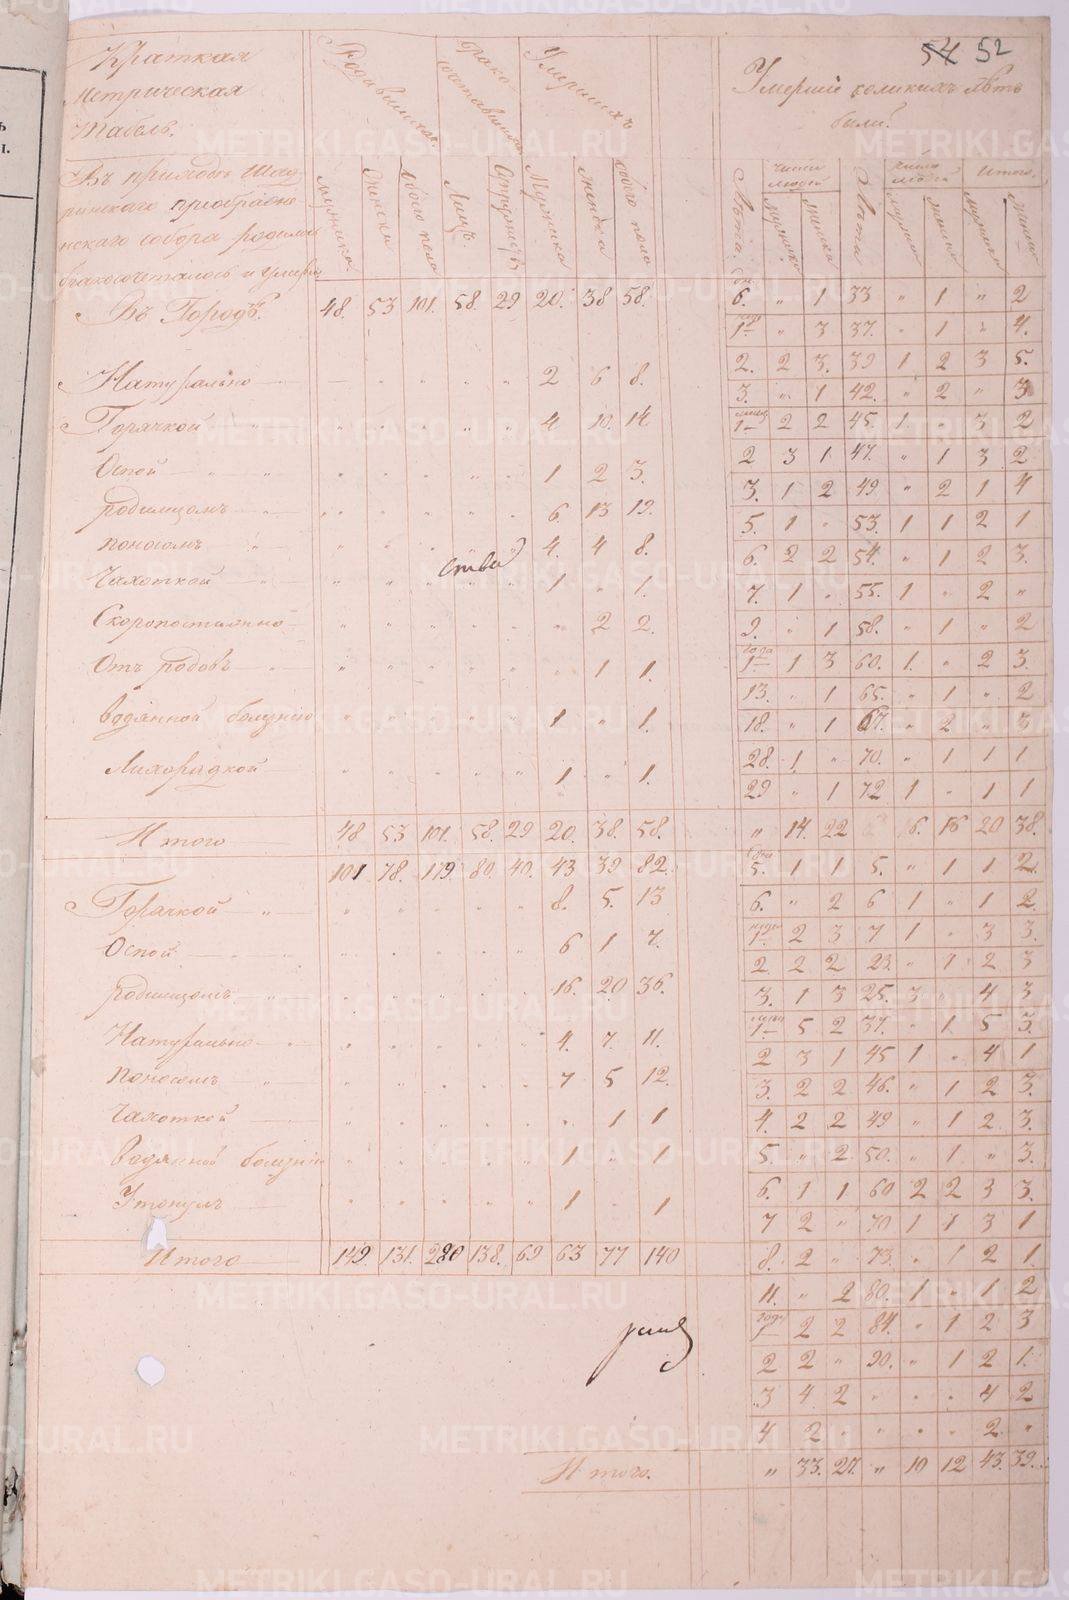 54 52
Краткая
Метрическая
Табель.
Родившихся.
Умершихъ
Умершiе коликихъ лѣтъ
были.
Въ приходѣ Шад-
ринскаго преображе-
нскаго собора родилось
бракосочеталось и умерло
Мужеска Женска обоего пола Лицъ Супружествъ Мужеска женска обоего пола
Лѣта. число людей Лѣта число людей Итого.
мужеска женска мужеска женска мужеска женска
Въ Городѣ. 48. 53 101. 58. 29 20. 38 58.
Натурально 2 6 8.
Горячкой 4 10. 14.
Оспой 1 2 3.
родимцомъ 6. 13 19.
поносомъ 4. 4 8.
Чахоткой 1 „ 1.
Скоропостижно „ 2 2.
Отъ родовъ „ 1 1.
водянной болезнiю 1 „ 1.
Лихорадкой 1 „ 1.
Итого 48 53 101. 58. 29 20. 38. 58.
101 78. 179. 80. 40. 43 39 82.
Горячкой 8. 5. 13
Оспой 6 1 7.
родимцомъ 16. 20 36.
Натурально 4. 7. 11.
поносомъ 7 5 12.
Чахоткой „ 1 1
водянной болезнiю 1 „ 1
Утонулъ 1 . 1
Итого 149. 131. 280 138. 69 63 77 140
6. „ 1 33 „ 1 „ 2
1 „ 3 37. „ 1 „ 4.
2. 2 3. 39 1 2 3 5.
3. „ 1 42. „ 2 „ 3
1 2 2 45. 1 „ 3 2
2 3 1 47. „ 1 3 2
3. 1 2 49 „ 2 1 4
5. 1 „ 53. 1 1 2 1
6. 2 2 54. „ 1 2 3.
7. 1 „ 55. 1 „ 2 „
9. „ 1 58. „ 1 „ 2
года
1 1 3 60. 1. „ 2 3.
13. „ 1 65. „ 1 „ 2
18. „ 1 67. „ 2 „ 3
28. 1 „ 70. „ 1 1 1
29 „ 1 72 1 „ 1 1
„ 14. 22 6. 16 20 38.
5. 1 1 5. „ 1 1 2.
6. „ 2 6 1 „ 1 2.
1. 2 3 7 1 „ 3 3.
2 2 2 23. „ 1 2 3
3. 1 3 25. 3 „ 4 3
1 5 2 37. „ 1 5 3.
2 3 1 45 1 „ 4 1
3. 2 2 46. „ 1 2 3.
4. 2 2 49 „ 1 2 3.
5. „ 2 50. „ 1 „ 3.
6. 1 1 60 2 2 3 3.
7 2 „ 70 1 1 3 1
8. 2 „ 73. „ 1 2 1
11. „ 2 80. 1 „ 1 2
1 2 2 84. „ 1 2 3
2 2 „ 90. „ 1 2 1.
3 4 2 „ „ „ 4 2
4 2 „ „ „ „ 2 „
Итого. „ 33. 27. „ 10 12 43. 39.
METRIKI.GASO-URAL.RU